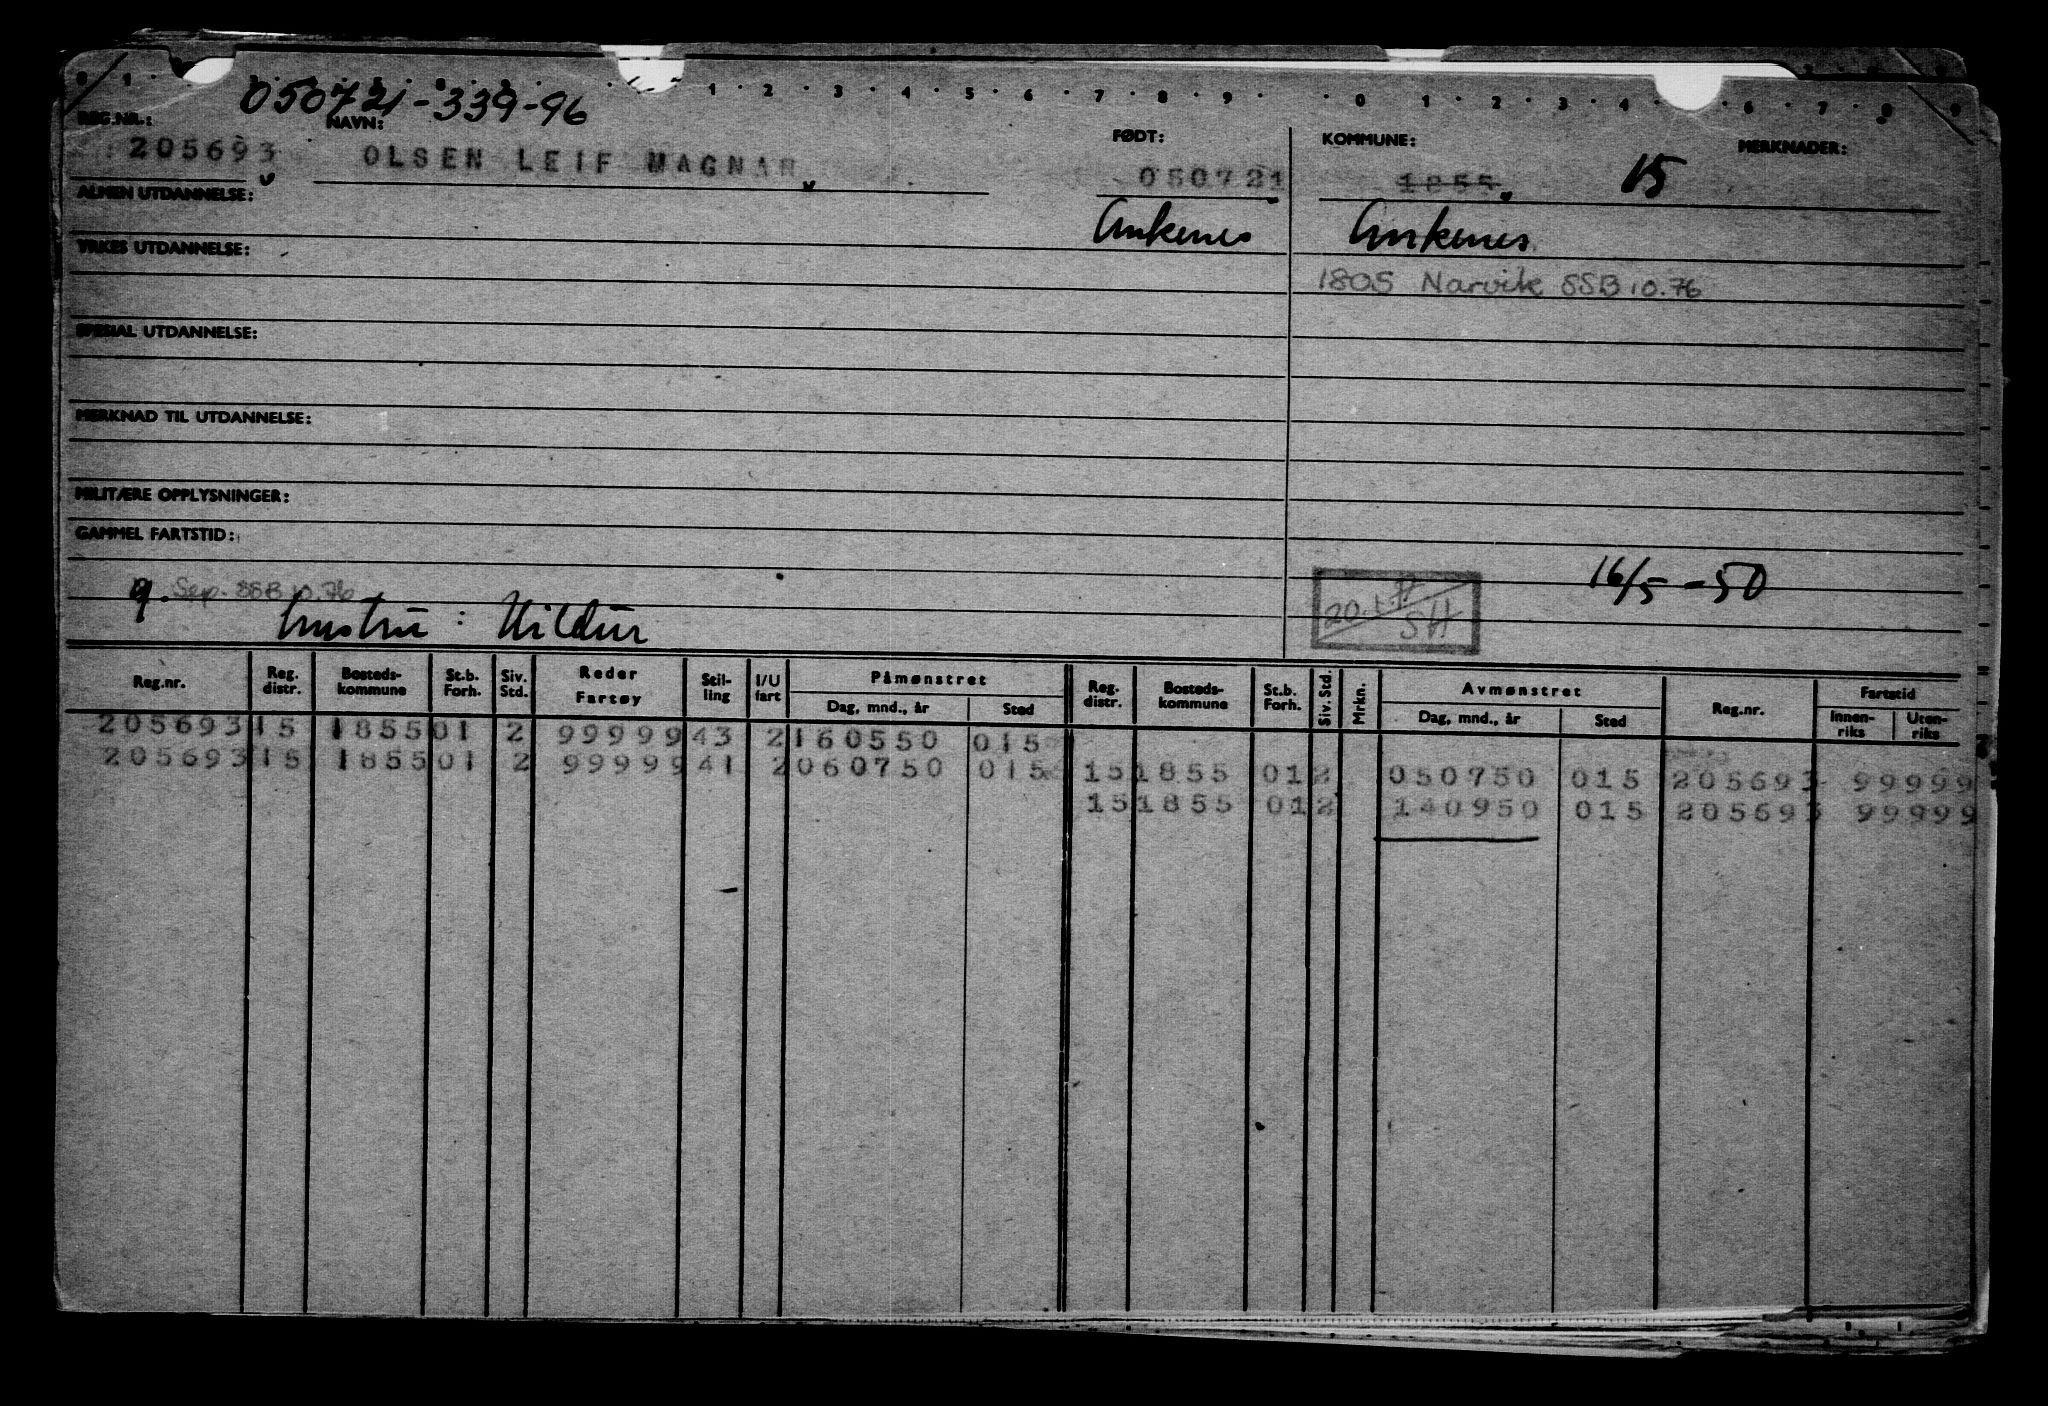 050721-339-96
REG.NR.: NAVN: FØDT: KOMMUNE: MERKNADER:
205693 OLSEN LEIF MAGNAR 050721 1855 15
ALMEN UTDANNELSE: Ankenes Ankenes
YRKES UTDANNELSE:
1805 Narvik SSB 10.76
SPESIAL UTDANNELSE:
MERKNAD TIL UTDANNELSE:
MILITÆRE OPPLYSNINGER:
GAMMEL FARTSTID:
16/5-50
g. Sep. SSB 10.76
hustru: Hildur
SH
Reg.nr. Reg. distr. Bosteds-kommune St.b. Forh. Siv. Std. Reder Fartøy Stil-ling I/U fart Påmønstret Dag, mnd., år Sted Reg. distr. Bosteds-kommune St.b. Forh. Siv. Std. Mrkn. Avmønstret Dag, mnd., år Sted Reg.nr. Fartstid Innen-riks Uten-riks
205693 15 1855 01 2 99999 43 2 160550 015
205693 15 1855 01 2 99999 41 2 060750 015 15 1855 01 2 050750 015 205693 99999
15 1855 01 2 140950 015 205693 99999